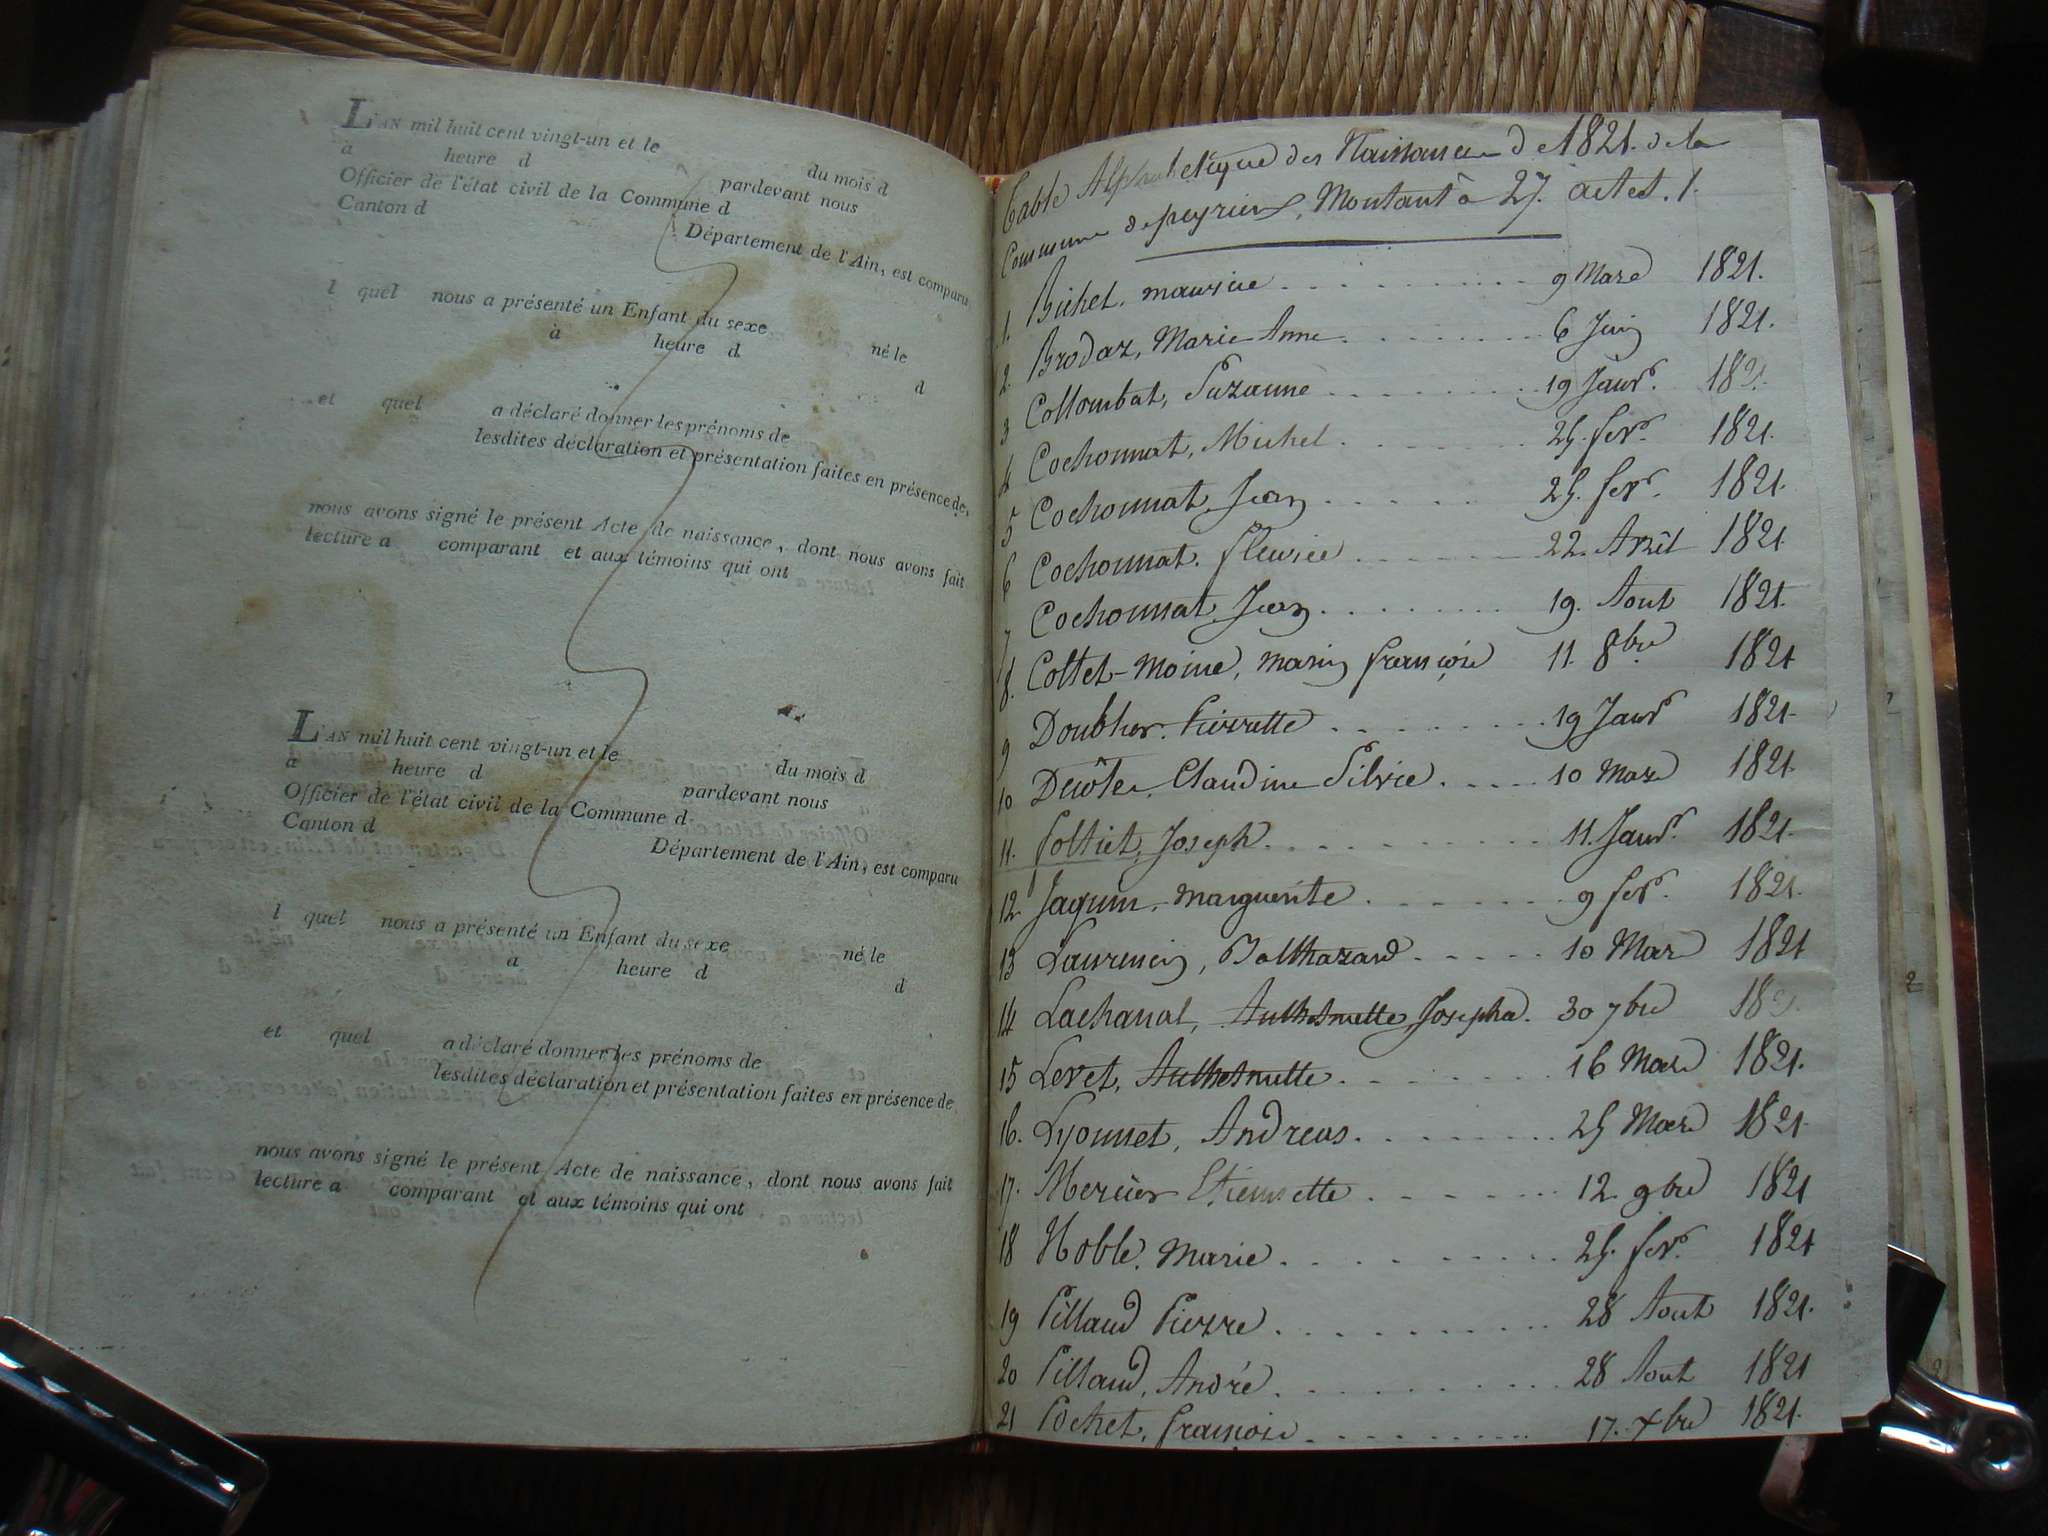 L'AN mil huit cent vingt-un et le du mois d
à heure d pardevant nous
Officier de l'état civil de la Commune d
Canton d Département de l'Ain, est comparu
l quel nous a présenté un Enfant du sexe né le
à heure d d
et quel a déclaré donner les prénoms de
lesdites déclaration et présentation faites en présence de,
nous avons signé le présent Acte de naissance, dont nous avons fait
lecture a comparant et aux témoins qui ont
L'AN mil huit cent vingt-un et le du mois d
à heure d pardevant nous
Officier de l'état civil de la Commune d
Canton d Département de l'Ain, est comparu
l quel nous a présenté un Enfant du sexe né le
à heure d d
et quel a déclaré donner les prénoms de
lesdites déclaration et présentation faites en présence de,
nous avons signé le présent Acte de naissance, dont nous avons fait
lecture a comparant et aux témoins qui ont
Table Alphabetique des Naissances de 1821. de la
Commune de peyrieux, Montant à 27. actes.
1. Bichet. maurice 9 Mars 1821.
2. Brodaz, Marie Anne 6 Juin 1821.
3 Collombat, Suzanne 19 Janvr. 1821.
4 Cochonnat, Michel 25. fevr. 1821.
5 Cochonnat Jean 25. fevr. 1821.
6 Cochonnat. fleurie 22. Avril 1821
7 Cochonnat Jean 19. Aout 1821.
8. Collet-Moine, marie françoise 11. 8bre 1821
9 Doublier. Pierrette 19 Janvr 1821.
10 Decôte, Claudine Silvie 10 Mars 1821.
11. folliet, Joseph 11. Janvr. 1821.
12 Jaquin, marguerite 9 fevr. 1821.
13 Laurencin, Balthazard 10 Mars 1821
14 Lachanal, Josepha. 30 7bre 1821.
15 Levet, 16 Mars 1821.
16. Lyonnet, Andreas 25 Mars 1821.
17. Mercier Etiennette 12. 9bre 1821
18 Noble. Marie 25. fevr. 1821
19 Pillaud Pierre 28 Aout 1821.
20 Pillaud, André 28 Aout 1821
21 Pochet, françoise 17. xbre 1821.